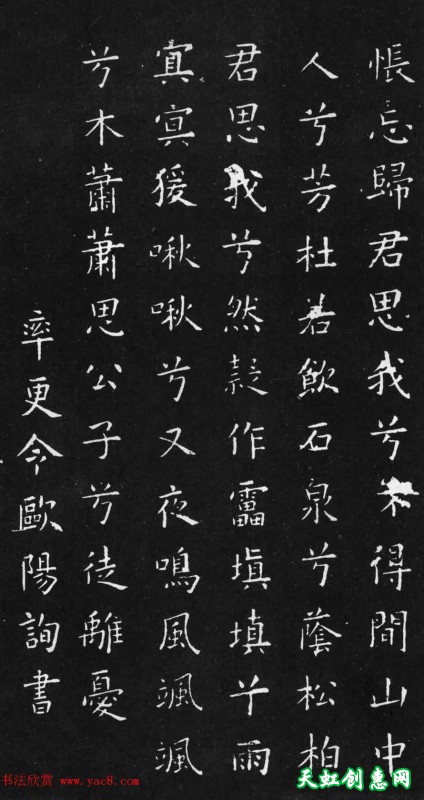 悵忘歸君思我兮不得間山中
人兮芳杜若飲石泉兮蔭松柏
君思我兮然疑作靁填填兮雨
冥冥猨啾啾兮又夜鳴風颯颯
兮木蕭蕭思公子兮徒離憂
率更令歐陽詢書
书法欣赏 www.yac8.com
天虹创惠网